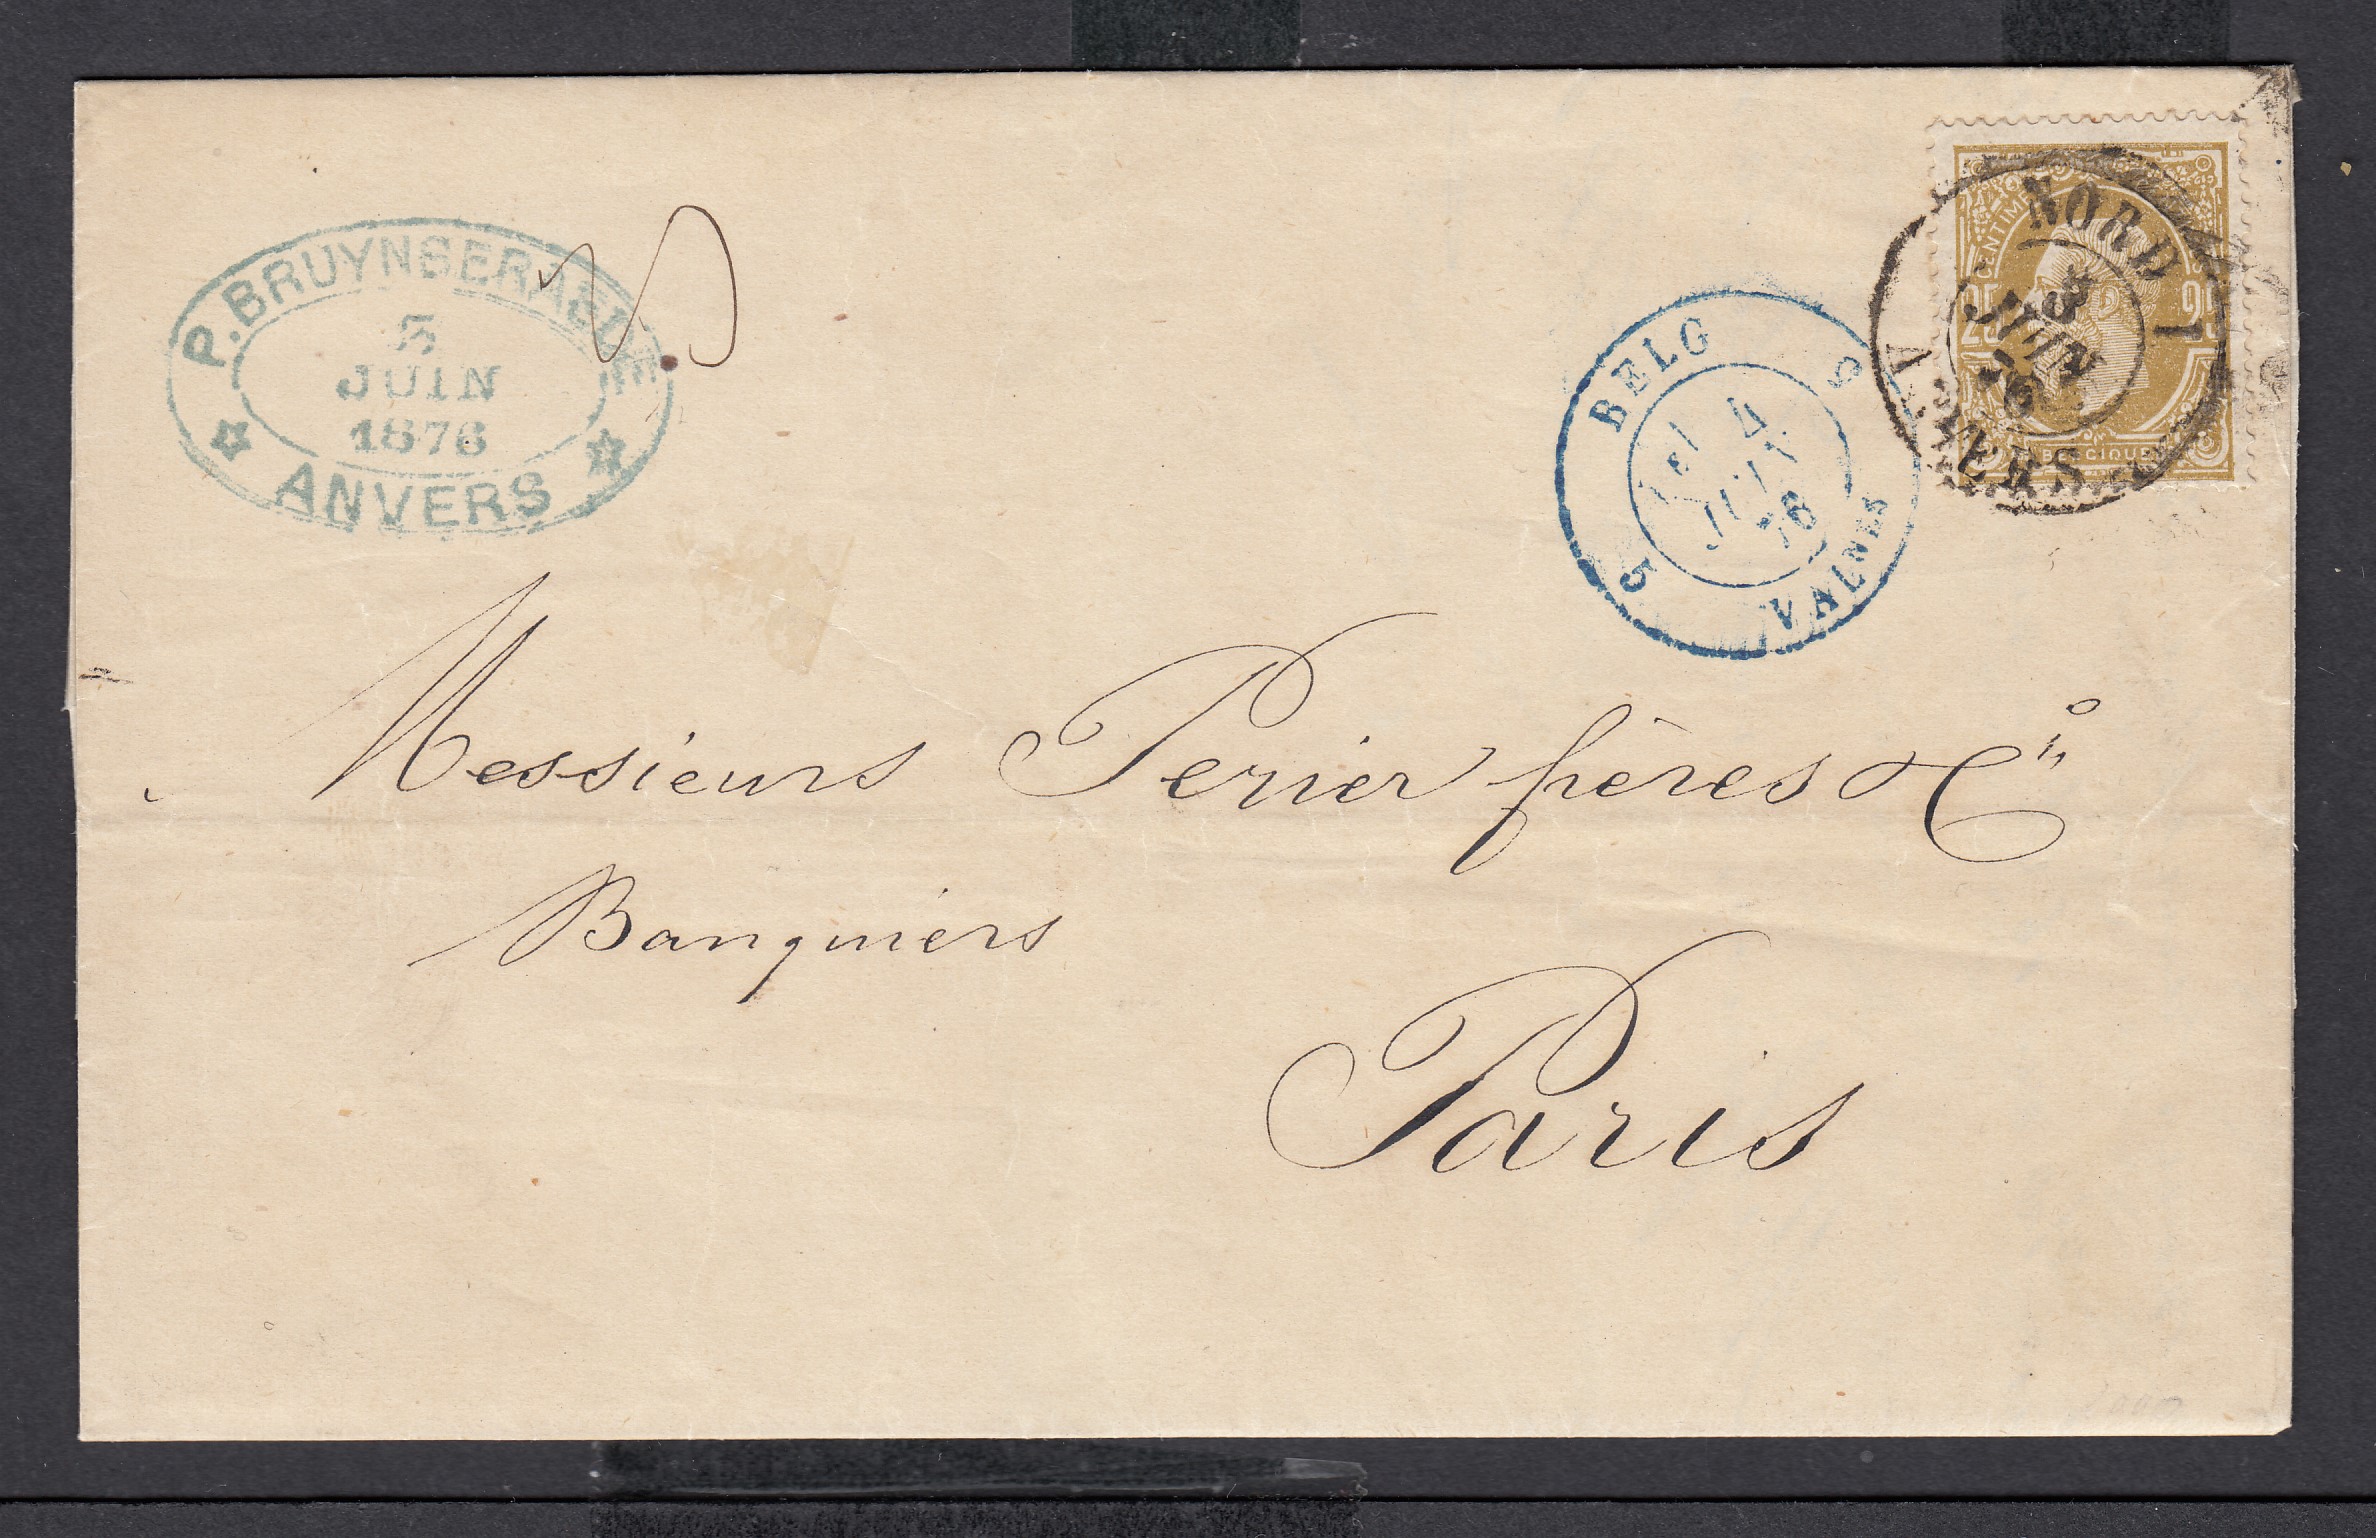 P. BRUYNSERAEDE
3
JUIN
1876
ANVERS
BELG
4
JUIN
76
5
VALNES
NORD 1
3
JUIN
76
ANVERS
CENTIMES
25
BELGIQUE
Messieurs Perier frères & Cie
Banquiers
Paris